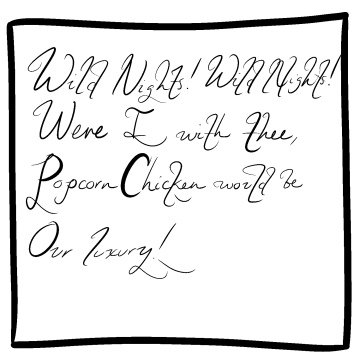 Wild Nights! Wild Nights!
Were I with thee,
Popcorn Chicken would be
Our luxury!